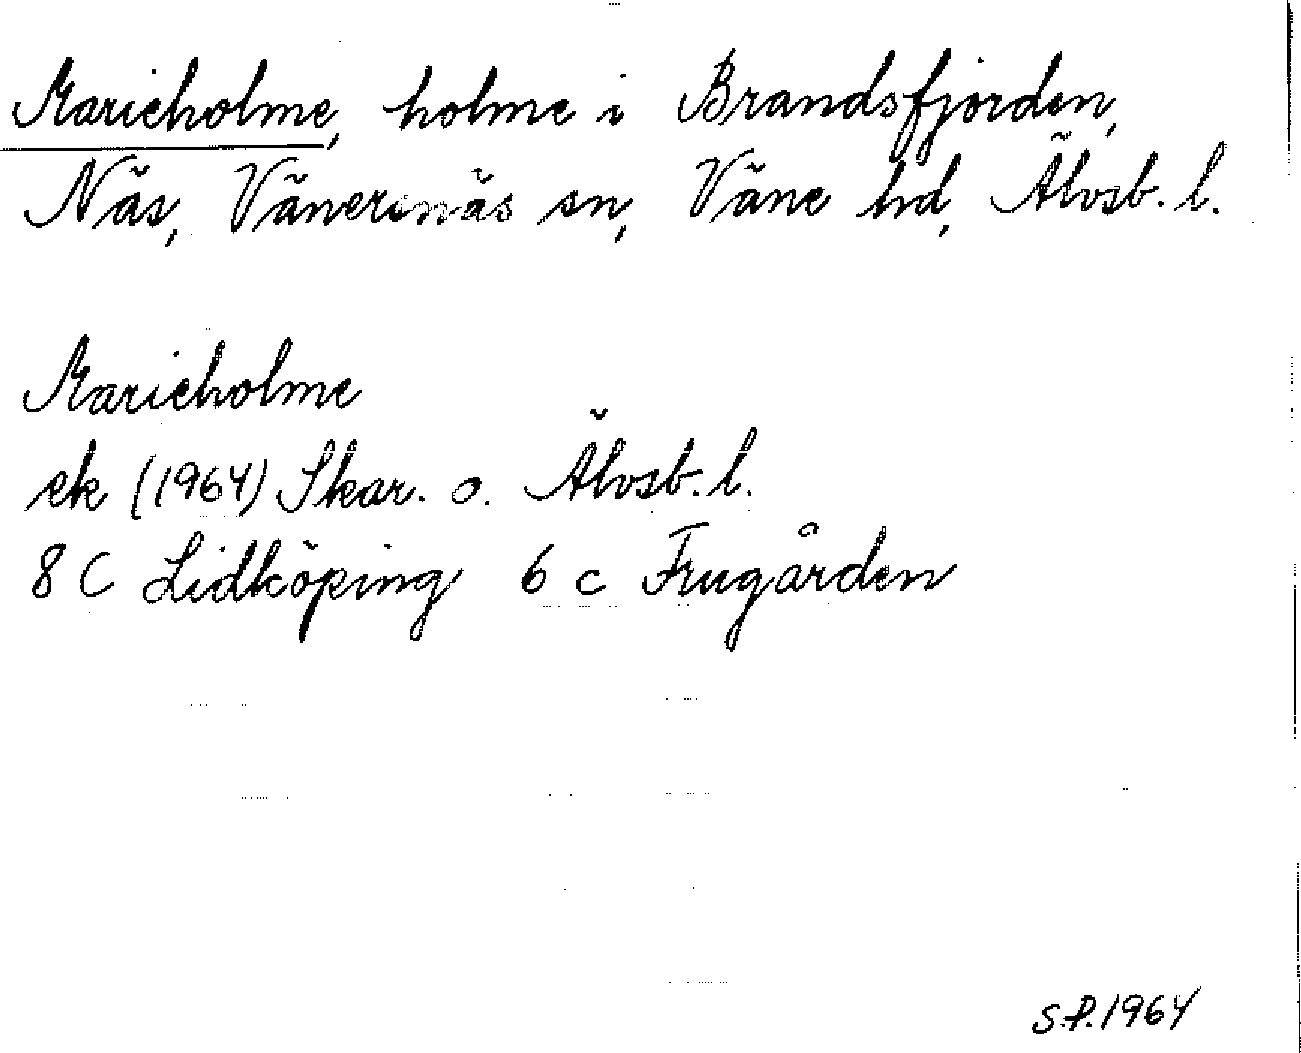 Marieholme, holme i Brandsfjorden,
Näs, Vänersnäs sn, Väne hd, Älvsb. l.
Marieholme
ek (1964) Skar. o. Älvsb. l.
8 C Lidköping 6 c Frugården
S.P. 1964